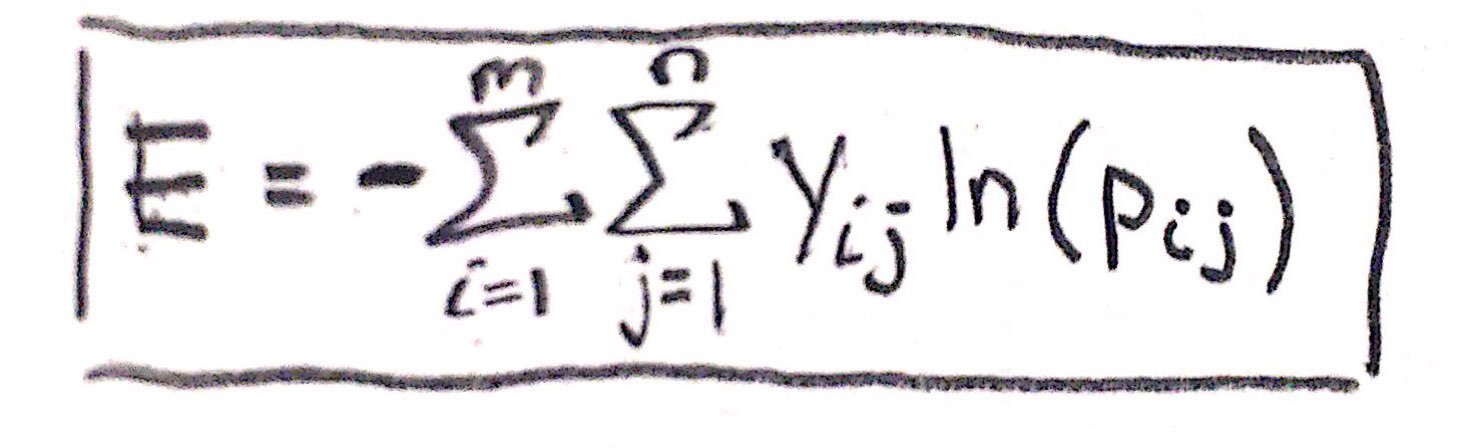 E = -\sum_{i=1}^{m} \sum_{j=1}^{n} y_{ij} ln(p_{ij})